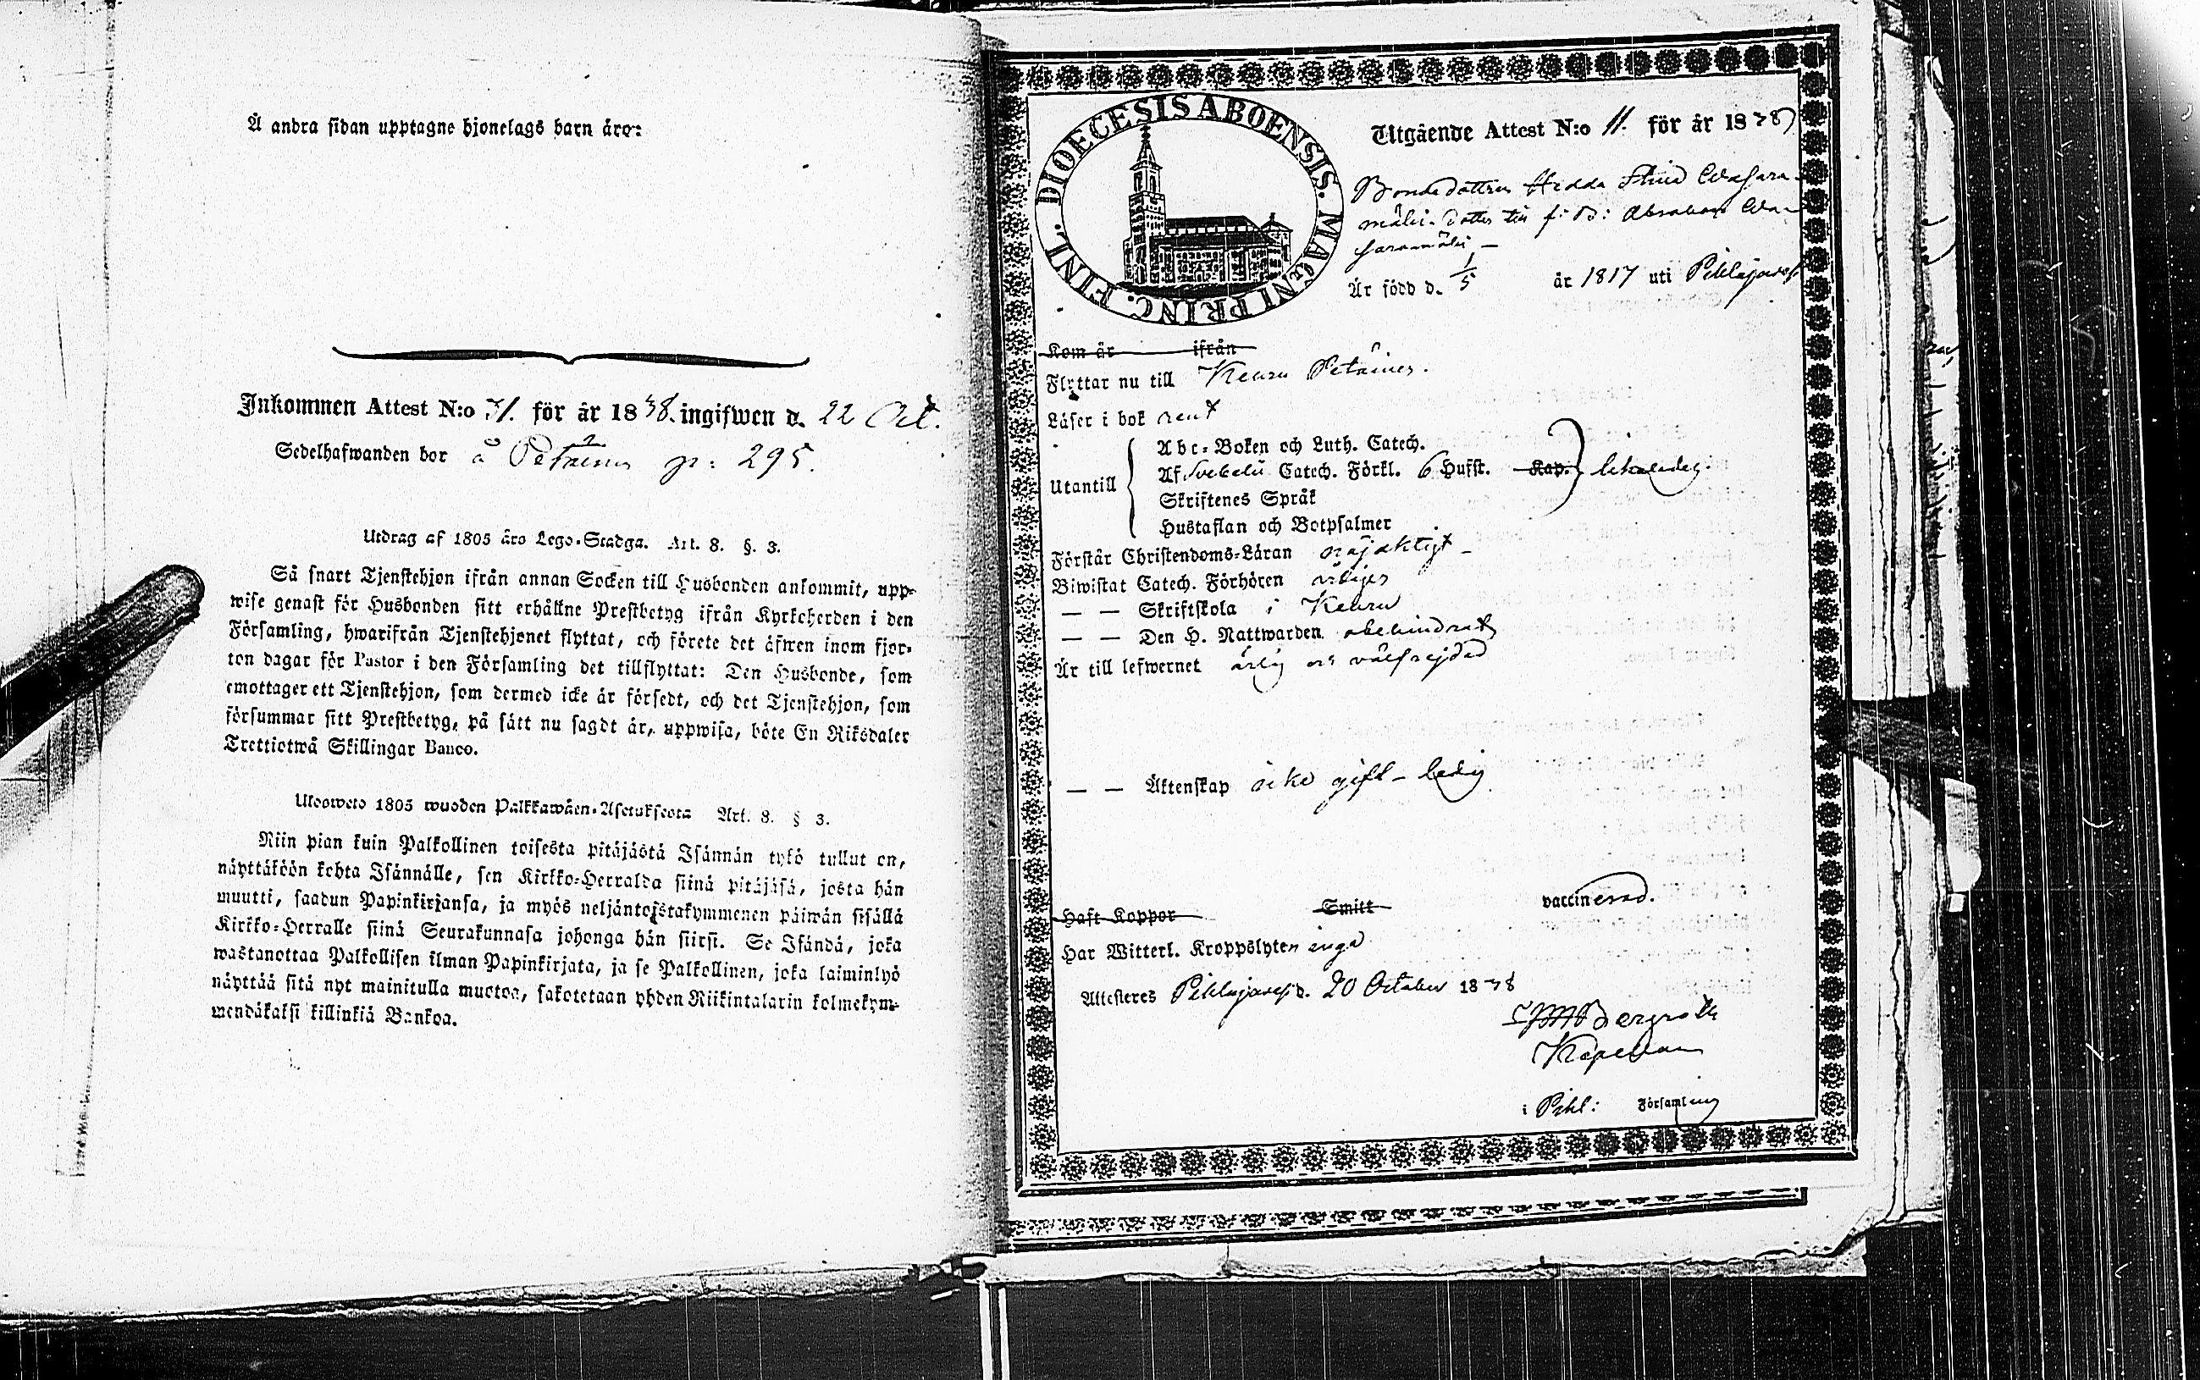 Å andra sidan upptagne hjonelags barn äro:
Inkommen Attest N:o 31. för år 1838. ingifwen d. 22 Oct.
Sedelhafwanden bor å Petäinen p: 295.
Utdrag af 1805 års Lego-Stadga. Art. 8. §. 3.
Så snart Tjenstehjon ifrån annan Socken till Husbonden ankommit, upp-
wise genast för Husbonden sitt erhållne Prestbetyg ifrån Kyrkoherden i den
Församling, hwarifrån Tjenstehjonet flyttat, och förete det äfwen inom fjor-
ton dagar för Pastor i den Församling det tillflyttat: Den Husbonde, som
emottager ett Tjenstehjon, som dermed icke är försedt, och det Tjenstehjon, som
försummar sitt Prestbetyg, på sätt nu sagdt är, uppwisa, böte En Riksdaler
Trettiotwå Skillingar Banco.
Ulosweto 1805 wuoden Palkkawäen-Asetuksesta Art. 8. § 3.
Niin pian kuin Palkollinen toisesta pitäjästä Isännän tykö tullut on,
näyttäköön kohta Isännälle, sen Kirkko-Herralda siinä pitäjäsä, josta hän
muutti, saadun Papinkirjansa, ja myös neljäntoistakymmenen päiwän sisällä
Kirkko-Herralle siinä Seurakunnasa johonga hän siirsi. Se Isändä, joka
wastanottaa Palkollisen ilman Papinkirjata, ja se Palkollinen, joka laiminlyö
näyttää sitä nyt mainitulla muotoa, sakotetaan yhden Riikintalarin kolmekym-
mendäkaksi killinkiä Bankoa.
DIOECESIS ABOENSIS. MAGNI PRINC. FINL.
Utgående Attest N:o 11. för år 1838
Bondedottren Hedda Stina
dotter till f: B: Abraham
Är född d. 1/5 år 1817 uti Pihlajavesi
Kom år ifrån
Flyttar nu till Keuru Petäinen.
Läser i bok rent
Utantill
Abc-Boken och Luth. Catech.
Af Svebelii Catech. Förkl. 6 Hufst. Kap.
Skriftenes Språk
Hustaflan och Botpsalmer
Förstår Christendoms-Läran nöjaktigt
Biwistat Catech. Förhören årligen
— — Skriftskola i Keuru
— — Den H. Nattwarden obehindrat
Är till lefwernet ärlig och välfrejdad
— — Äktenskap icke gift - ledig
Haft Koppor Smitt vaccinerad.
Har Witterl. Kroppslyten inga
Attesteras Pihlajavesi d. 20 October 1838
Bergroth
Kapellan
i Pihl: Församling